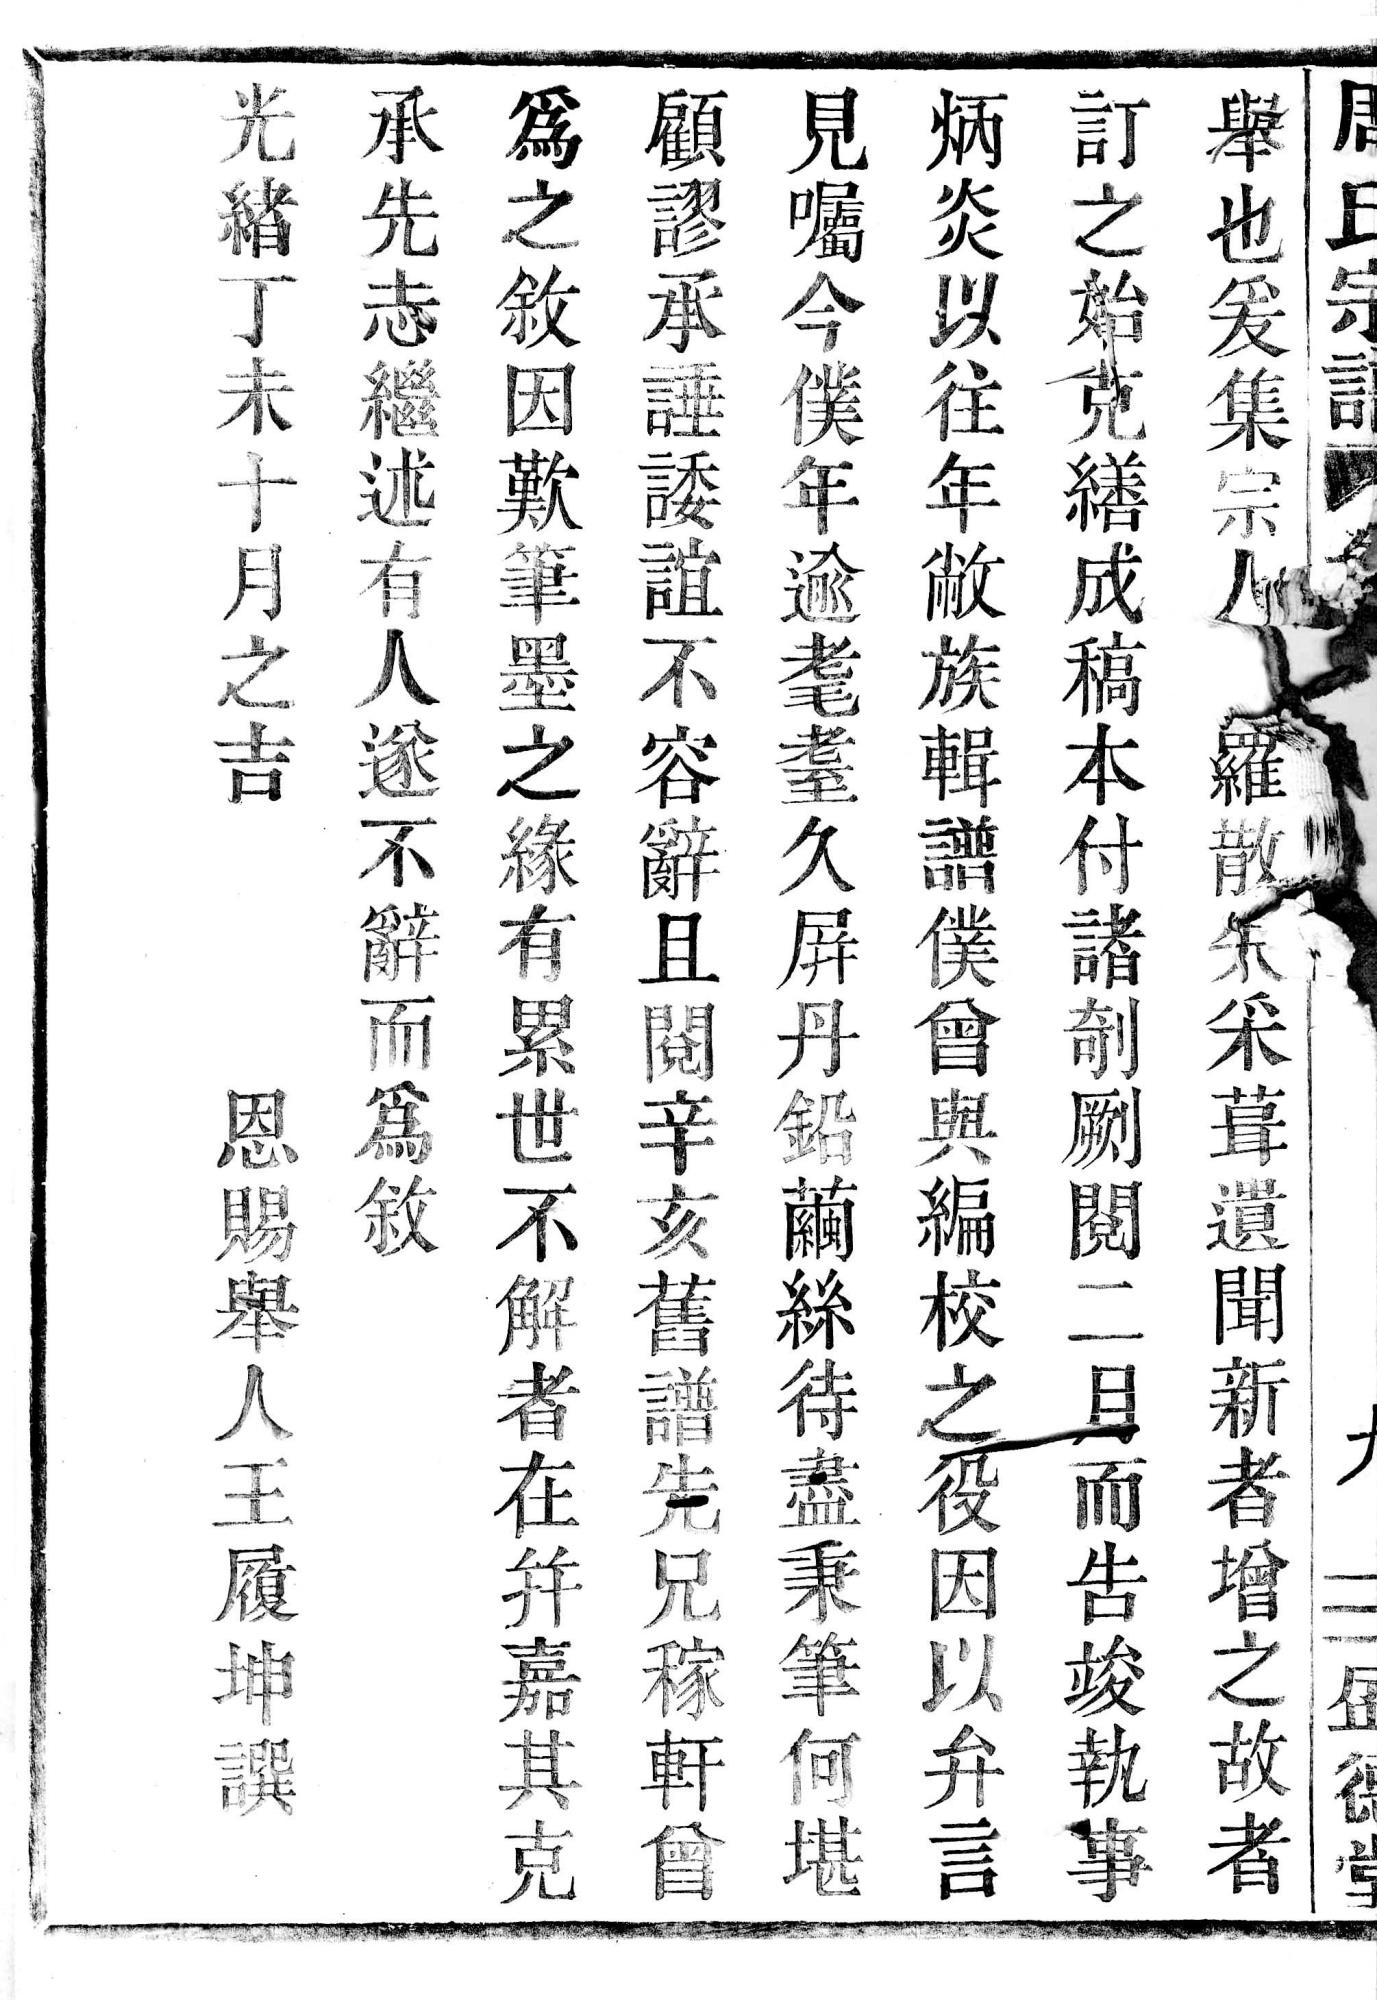 周氏宗譜 九 二 盛德堂
舉也爰集宗人羅散朱采葺遺聞新者增之故者
訂之始克繕成稿本付諸剞劂閱二月而告竣執事
炳炎以往年敝族輯譜僕曾與編校之役因以弁言
見囑今僕年逾耄耋久屏丹鉛繭絲待盡秉筆何堪
顧謬承諈諉誼不容辭且閱辛亥舊譜先兄稼軒曾
爲之敘因歎筆墨之緣有累世不解者在幷嘉其克
承先志繼述有人遂不辭而爲敘
光緒丁未十月之吉 恩賜舉人王履坤譔